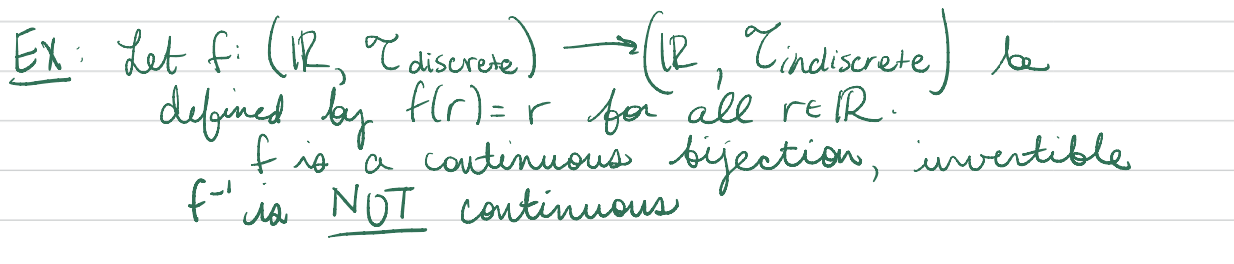 Ex: Let f: (ℝ, 𝒯discrete) → (ℝ, 𝒯indiscrete) be
defined by f(r) = r for all r ∈ ℝ.
f is a continuous bijection, invertible
f⁻¹ is NOT continuous